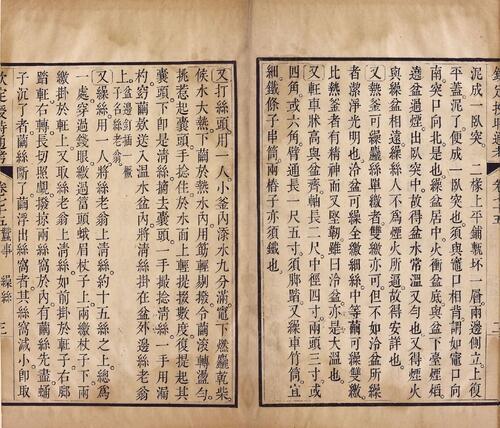 泥成一臥突。二樣上平鋪磚坯一層。兩邊側立上復
平蓋泥了。便成一臥突也。須與竈口相背謂如竈口向
南。突口向北。是也。繰盆居中。火衝盆底與盆下臺煙焰
遶盆過煙出臥突中。故得盆水常溫又勻也。又得煙火
與繰盆相遠。繰絲人不為煙火所逼。故得安詳也。
熱釜可繰麤絲單繳者雙繳亦可。但不如冷盆所繰
者潔淨光明也冷盆可繰全繳細絲。中等繭可繰雙繳
比熱釜者有精神而又堅韌。雖曰冷盆。亦是大溫也。
又軠車牀高與盆齊。軸長二尺。中徑四寸。兩頭三寸。或
四角。或六角。臂通長一尺五寸。須腳踏。又繰車竹筒。宜
細。鐵條子串筒。兩樁子亦須鐵也。
又打絲頭用一人。小釜內添水九分滿。竈下燃麤乾柴。
候水大熱。下繭於熱水內。用筯輕剔撥令繭滾轉盪勻。
挑惹起囊頭。手捻住於水面上。輕提掇數度。復提起。其
囊頭下即是清絲。摘去囊頭。手撮捻清絲。一手用漏
杓。繭欵送入溫水盆內。將清絲掛在盆外邊絲老翁
上。盆邊釘插一橛子名絲老翁。
又繰絲。用一人將絲老翁上清絲約十五絲之上。總為
一處。穿過錢眼。繳過頭蛾眉杖子上兩繳。杖子下兩
繳。掛於軠上。又取絲老翁上清絲如前掛於軠子右。
踏軠右轉。長切照覷撥掠兩絲窩。於內有繭絲先盡。蛹
子沉了者。繭絲斷了。繭浮出絲窩者。其絲窩減小。即取
欽定授時通考 卷七五 蠶事 繰絲 三